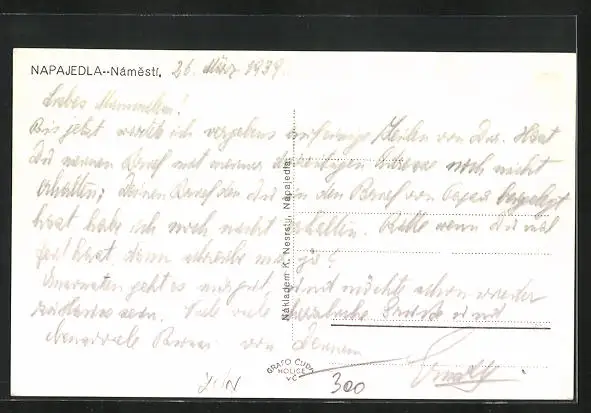 NAPAJEDLA--Náměstí.
26. März 1939.
Liebes Mamachen!
Bis jetzt wartete ich vergebens auf einige Zeilen von Dir. Hast
Du meinen Brief mit meiner derzeitigen Adresse noch nicht
erhalten; Deinen Brief den Du in den Brief von beigelegt
hast habe ich noch nicht erhalten. Bitte wenn Du mal
Zeit hast, dann schreibe mir ja!
Ansonsten geht es mir gut und möchte schon wieder
sein. Viele viele herzliche Grüße und
ebensoviele Bussi von Deinem
Nákladem K. Nesrstí, Napajedla.
GRAFO ČUDA
HOLICE
V Č
300